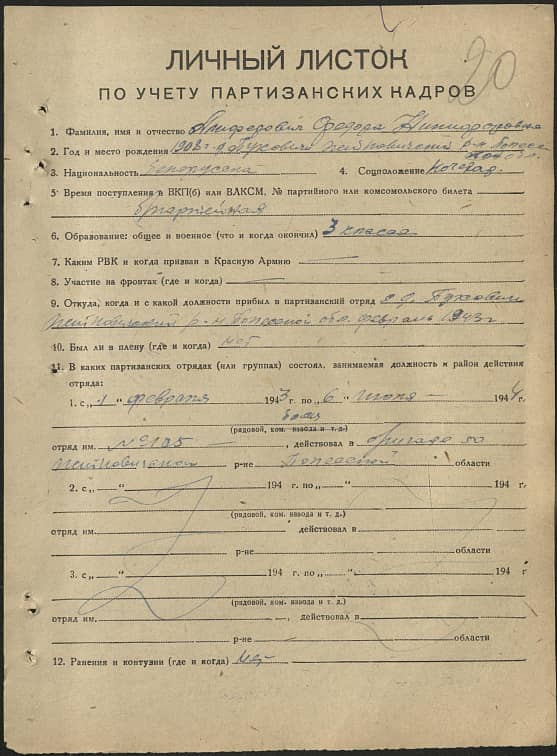 20
ЛИЧНЫЙ ЛИСТОК
ПО УЧЕТУ ПАРТИЗАНСКИХ КАДРОВ
1. Фамилия, имя и отчество Федора
2. Год и место рождения 1908 г. д. Пуховичи Житковичский р-н Полесс
кой обл.
3. Национальность белоруска 4. Соцположение
5 Время поступления в ВКП(б) или ВЛКСМ, № партийного или комсомольского билета
б/партейная
6. Образование: общее и военное (что и когда окончил) 3 класса
7. Каким РВК и когда призван в Красную Армию —
8. Участие на фронтах (где и когда) —
9. Откуда, когда и с какой должности прибыл в партизанский отряд с д. Пуховичи
Житковичский р-н Полесской обл. февраль 1943 г
10. Был ли в плену (где и когда) нет
11. В каких партизанских отрядах (или группах) состоял, занимаемая должность и район действия
отряда:
1. с „1“ февраля 1943 г. по „6“ июля 1944 г.
боец
(рядовой, ком. взвода и т. д.)
отряд им. № 125 — , действовал в бригаде 50
Житковичском р-не Полесской области
2. с „ “ 194 г. по „ “ 194 г
(рядовой, ком. взвода и т. д.)
отряд им. действовал в
р-не области
3. с „ “ 194 г. по „ “ 194 г
(рядовой, ком. взвода и т. д.)
отряд им. , действовал в
р-не области
12. Ранения и контузии (где и когда) нет